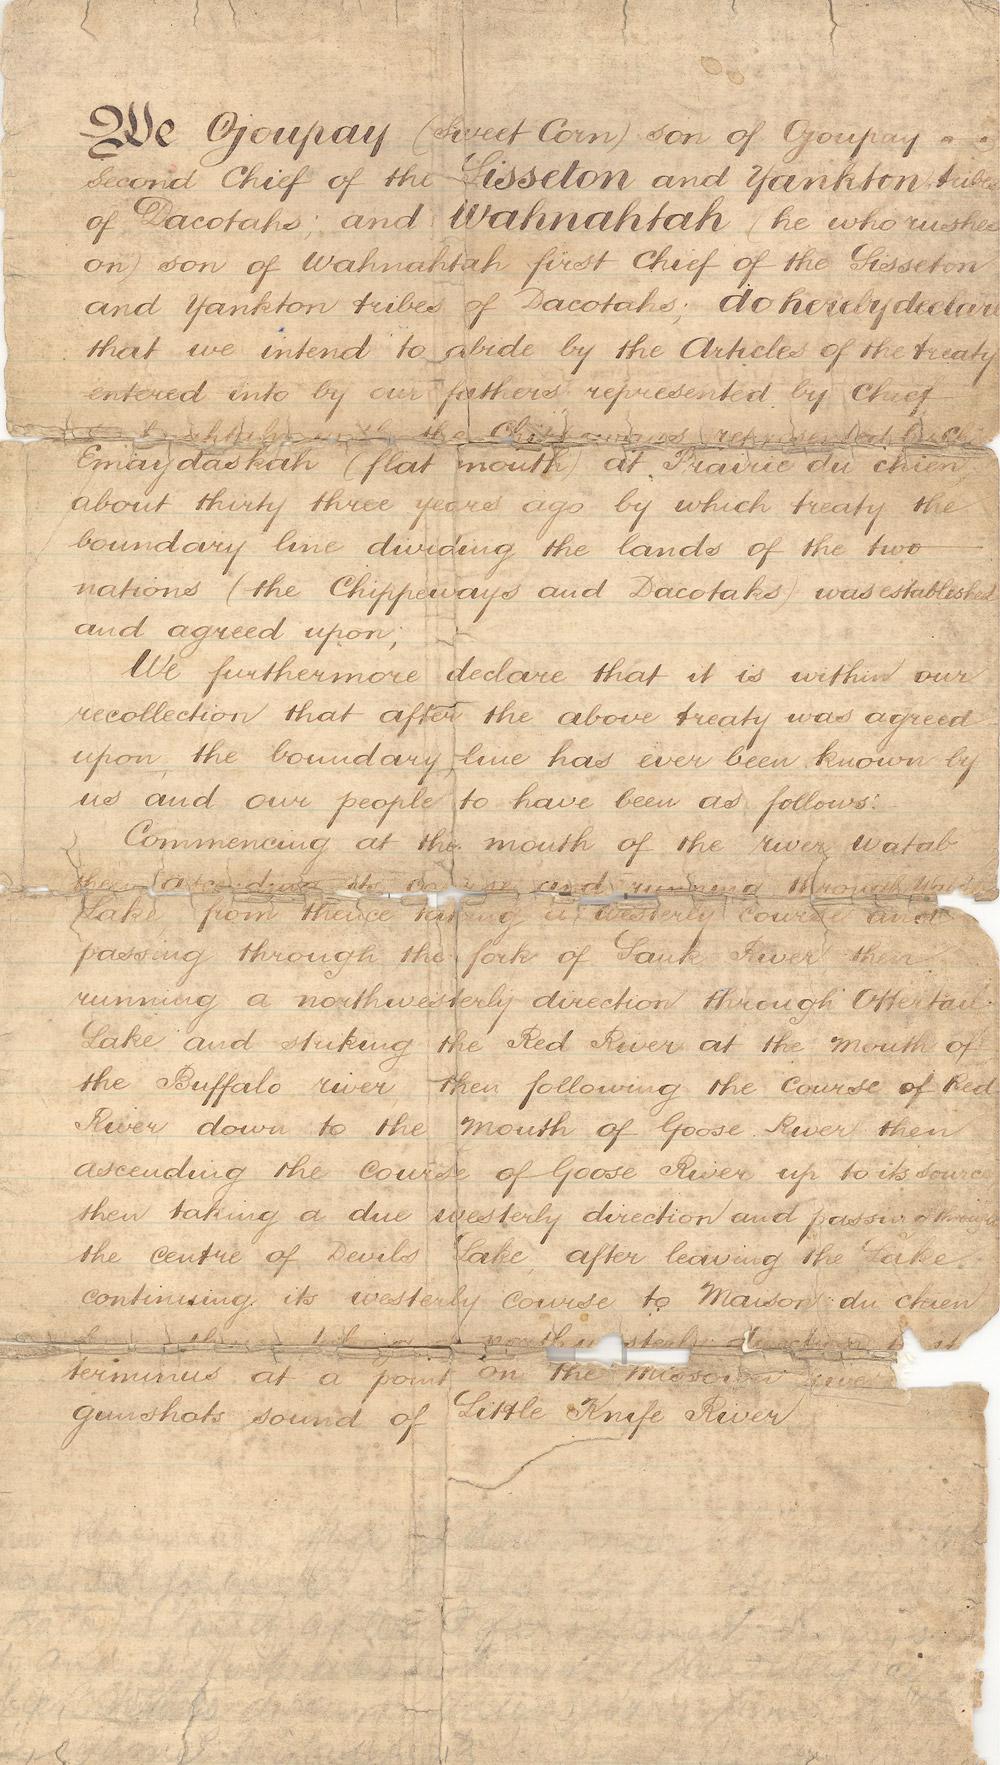 We Ojoupay (Sweet Corn) son of Ojoupay
Second Chief of the Sisseton and Yankton tribes
of Dacotahs; and Wahnahtah (he who rushes
on) son of Wahnahtah first Chief of the Sisseton
and Yankton tribes of Dacotahs; do hereby declare
that we intend to abide by the Articles of the treaty
entered into by our fathers represented by Chief
the represented by
Emaydaskah (flat mouth) at Prairie du chien
about thirty three years ago by which treaty the
boundary line dividing the lands of the two
nations (the Chippeways and Dacotahs) was established
and agreed upon;
We furthermore declare that it is within our
recollection that after the above treaty was agreed
upon, the boundary line has ever been known by
us and our people to have been as follows:
Commencing at the mouth of the river Watab
then ascending its course and running through
Lake, from thence taking a westerly course and
passing through the fork of Sauk River then
running a northwesterly direction through Ottertail
Lake and striking the Red River at the mouth of
the Buffalo river, then following the course of Red
River down to the mouth of Goose River then
ascending the course of Goose River up to its source
then taking a due westerly direction and passing through
the centre of Devils Lake, after leaving the Lake
continuing its westerly course to Maison du chien
northwesterly direction to
terminus at a point on the Missouri river
gunshots sound of Little Knife River